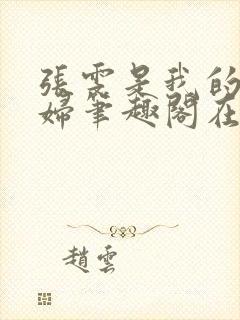 張雲是我的
婦筆趣閣在
趙雲